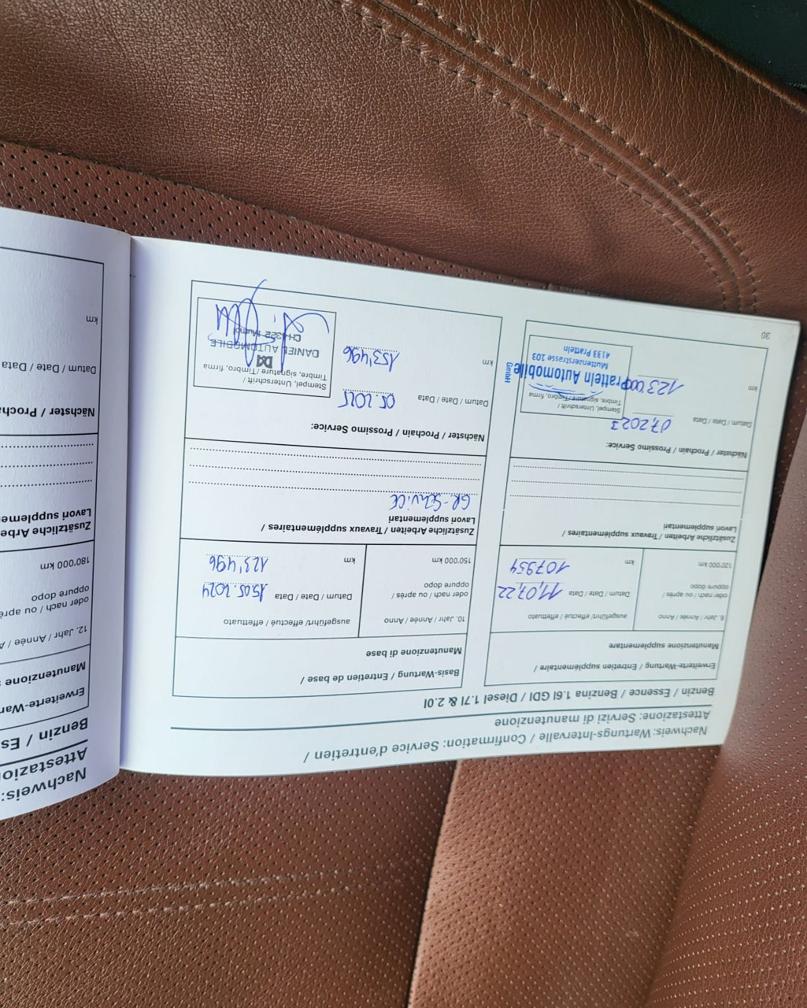 Nachweis: Wartungs-Intervalle / Confirmation: Service d'entretien /
Attestazione: Servizi di manutenzione
Benzin / Essence / Benzina 1.6l GDI / Diesel 1.7l & 2.0l
Erweiterte-Wartung / Entretien supplémentaire /
Manutenzione supplementare
8. Jahr / Année / Anno
oder nach / ou après /
oppure dopo
120'000 km
ausgeführt / effectué / effettuato
Datum / Date / Data 11,07,22
km 107954
Zusätzliche Arbeiten / Travaux supplémentaires /
Lavori supplementari
Nächster / Prochain / Prossimo Service:
Datum / Date / Data 07,2023
km 123000
Stempel, Unterschrift /
Timbre, signature / Timbro, firma
Pratteln Automobile
GmbH
Muttenzerstrasse 103
4133 Pratteln
30
Basis-Wartung / Entretien de base /
Manutenzione di base
10. Jahr / Année / Anno
oder nach / ou après /
oppure dopo
150'000 km
ausgeführt / effectué / effettuato
Datum / Date / Data 15.05.2024
km 123'496
Zusätzliche Arbeiten / Travaux supplémentaires /
Lavori supplementari
GR-SERVICE
Nächster / Prochain / Prossimo Service:
Datum / Date / Data 05.2025
km 153'496
Stempel, Unterschrift /
Timbre, signature / Timbro, firma
DANIEL AUTOMOBILE
CH-4322 Mumpf
Nachweis:
Attestazio
Benzin / Es
Erweiterte-War
Manutenzione s
12. Jahr / Année / A
oder nach / ou aprè
oppure dopo
180'000 km
Zusätzliche Arbeite
Lavori suppleme
Nächster / Procha
Datum / Date / Data
km